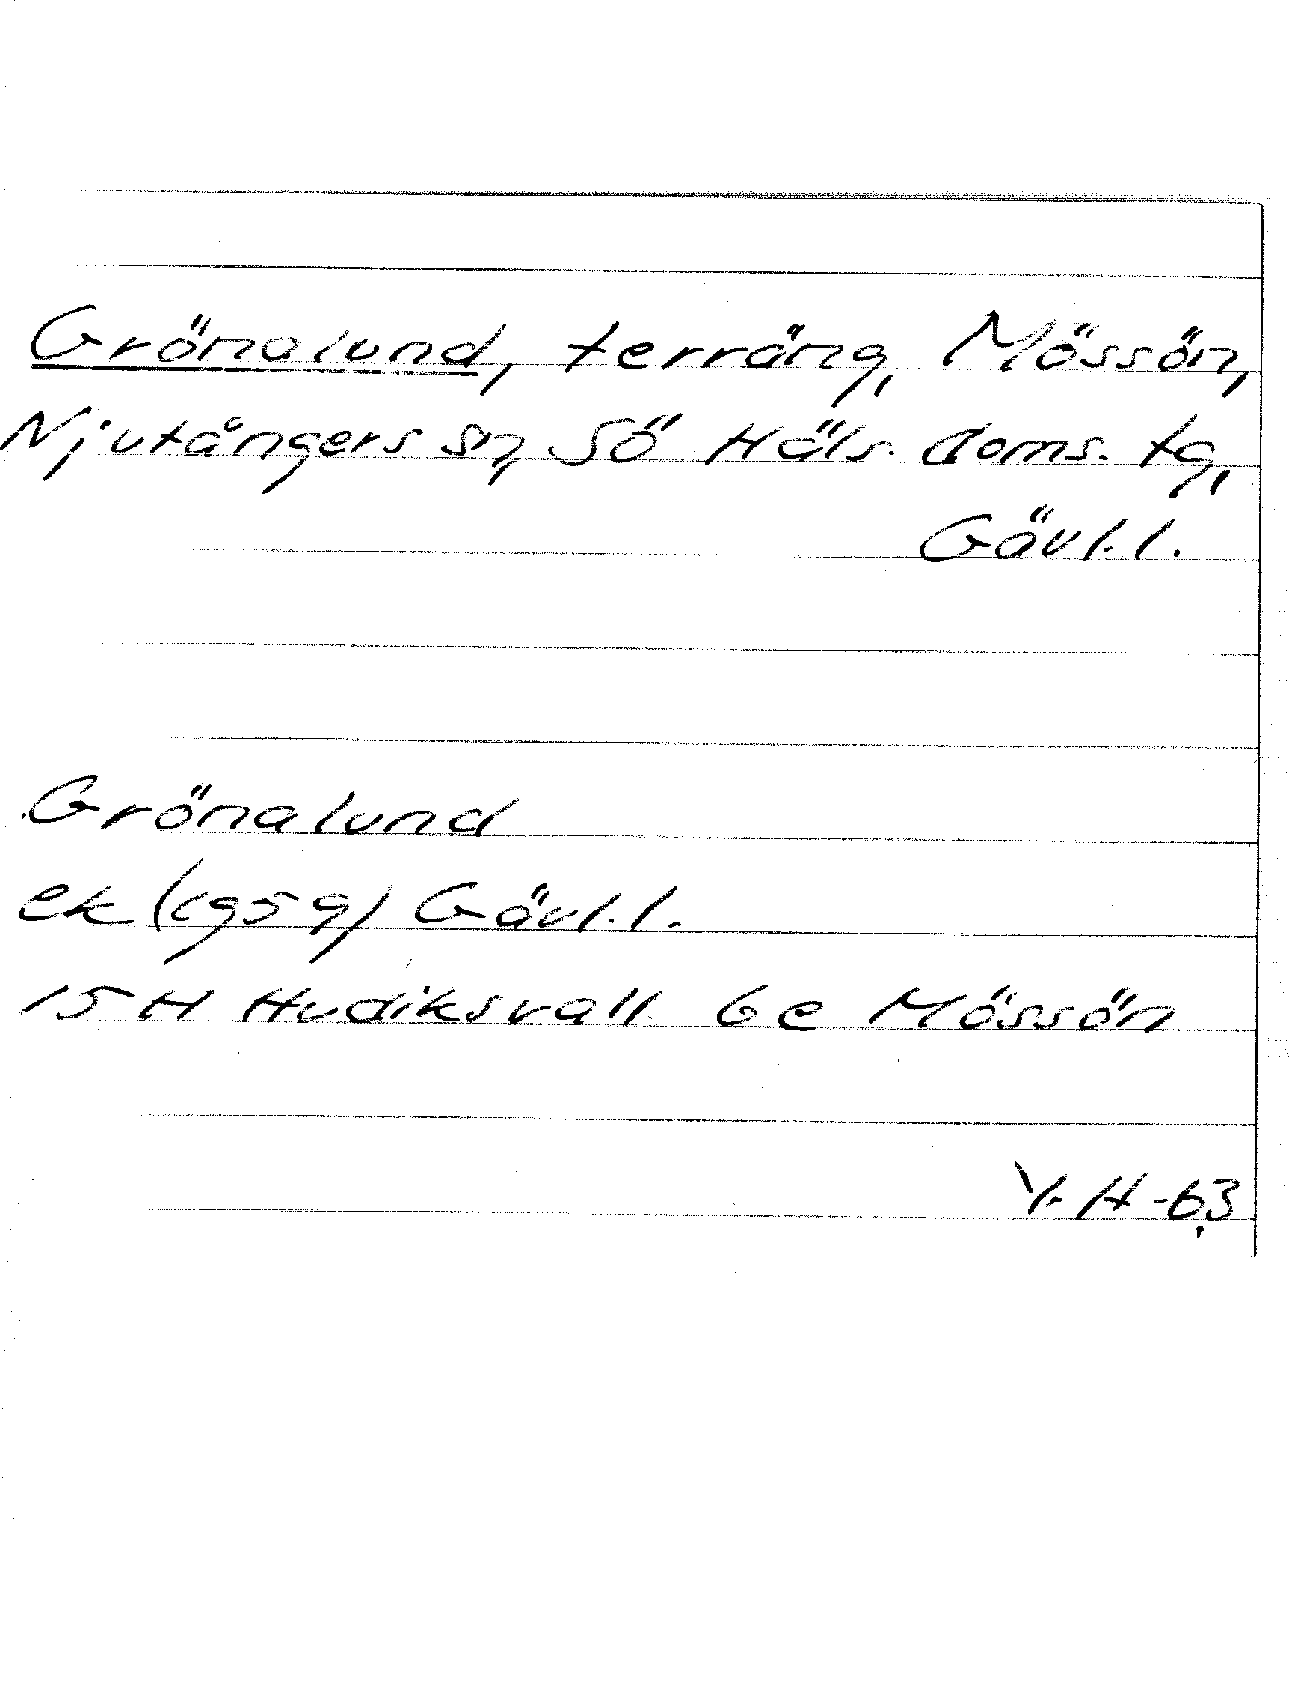 Grönalund, terräng, Mössön,
Njutångers sn, Sö Häls. doms. tg,
Gävl.l.
Grönalund
ek (1959) Gävl.l.
15 H Hudiksvall 6e Mössön
Y. H -63